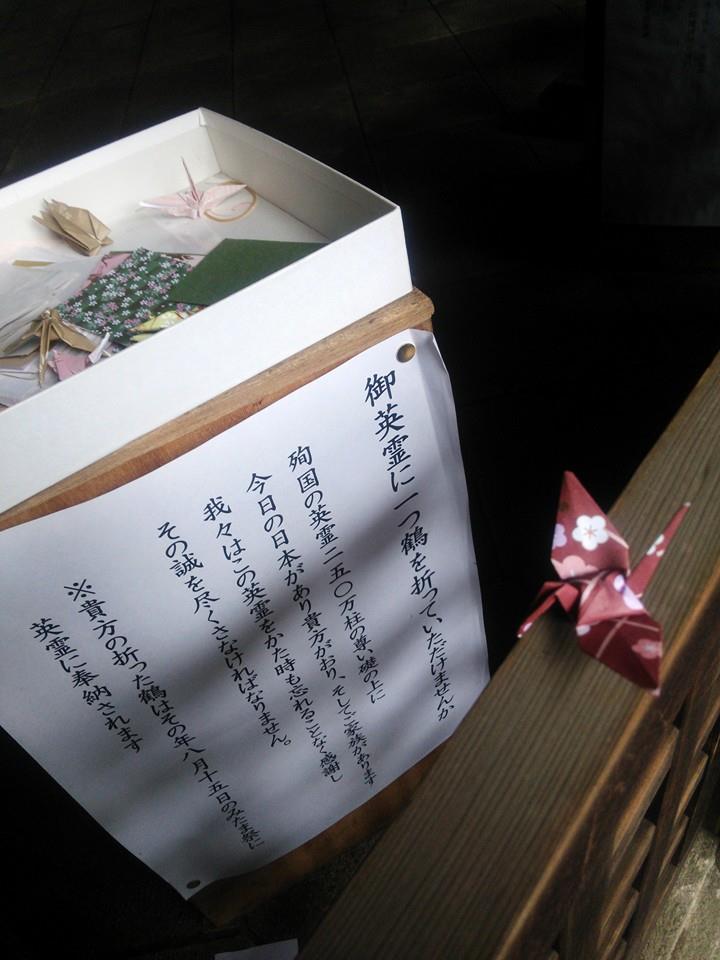 御英霊に一つ鶴を折っていただけませんか
殉国の英霊二五〇万柱の尊い礎の上に
今日の日本があり貴方がおり、そしてご家族があります
我々はこの英霊をかた時も忘れることなく感謝し
その誠を尽くさなければなりません。
※貴方の折った鶴はその年八月十五日のみたま祭に
英霊に奉納されます